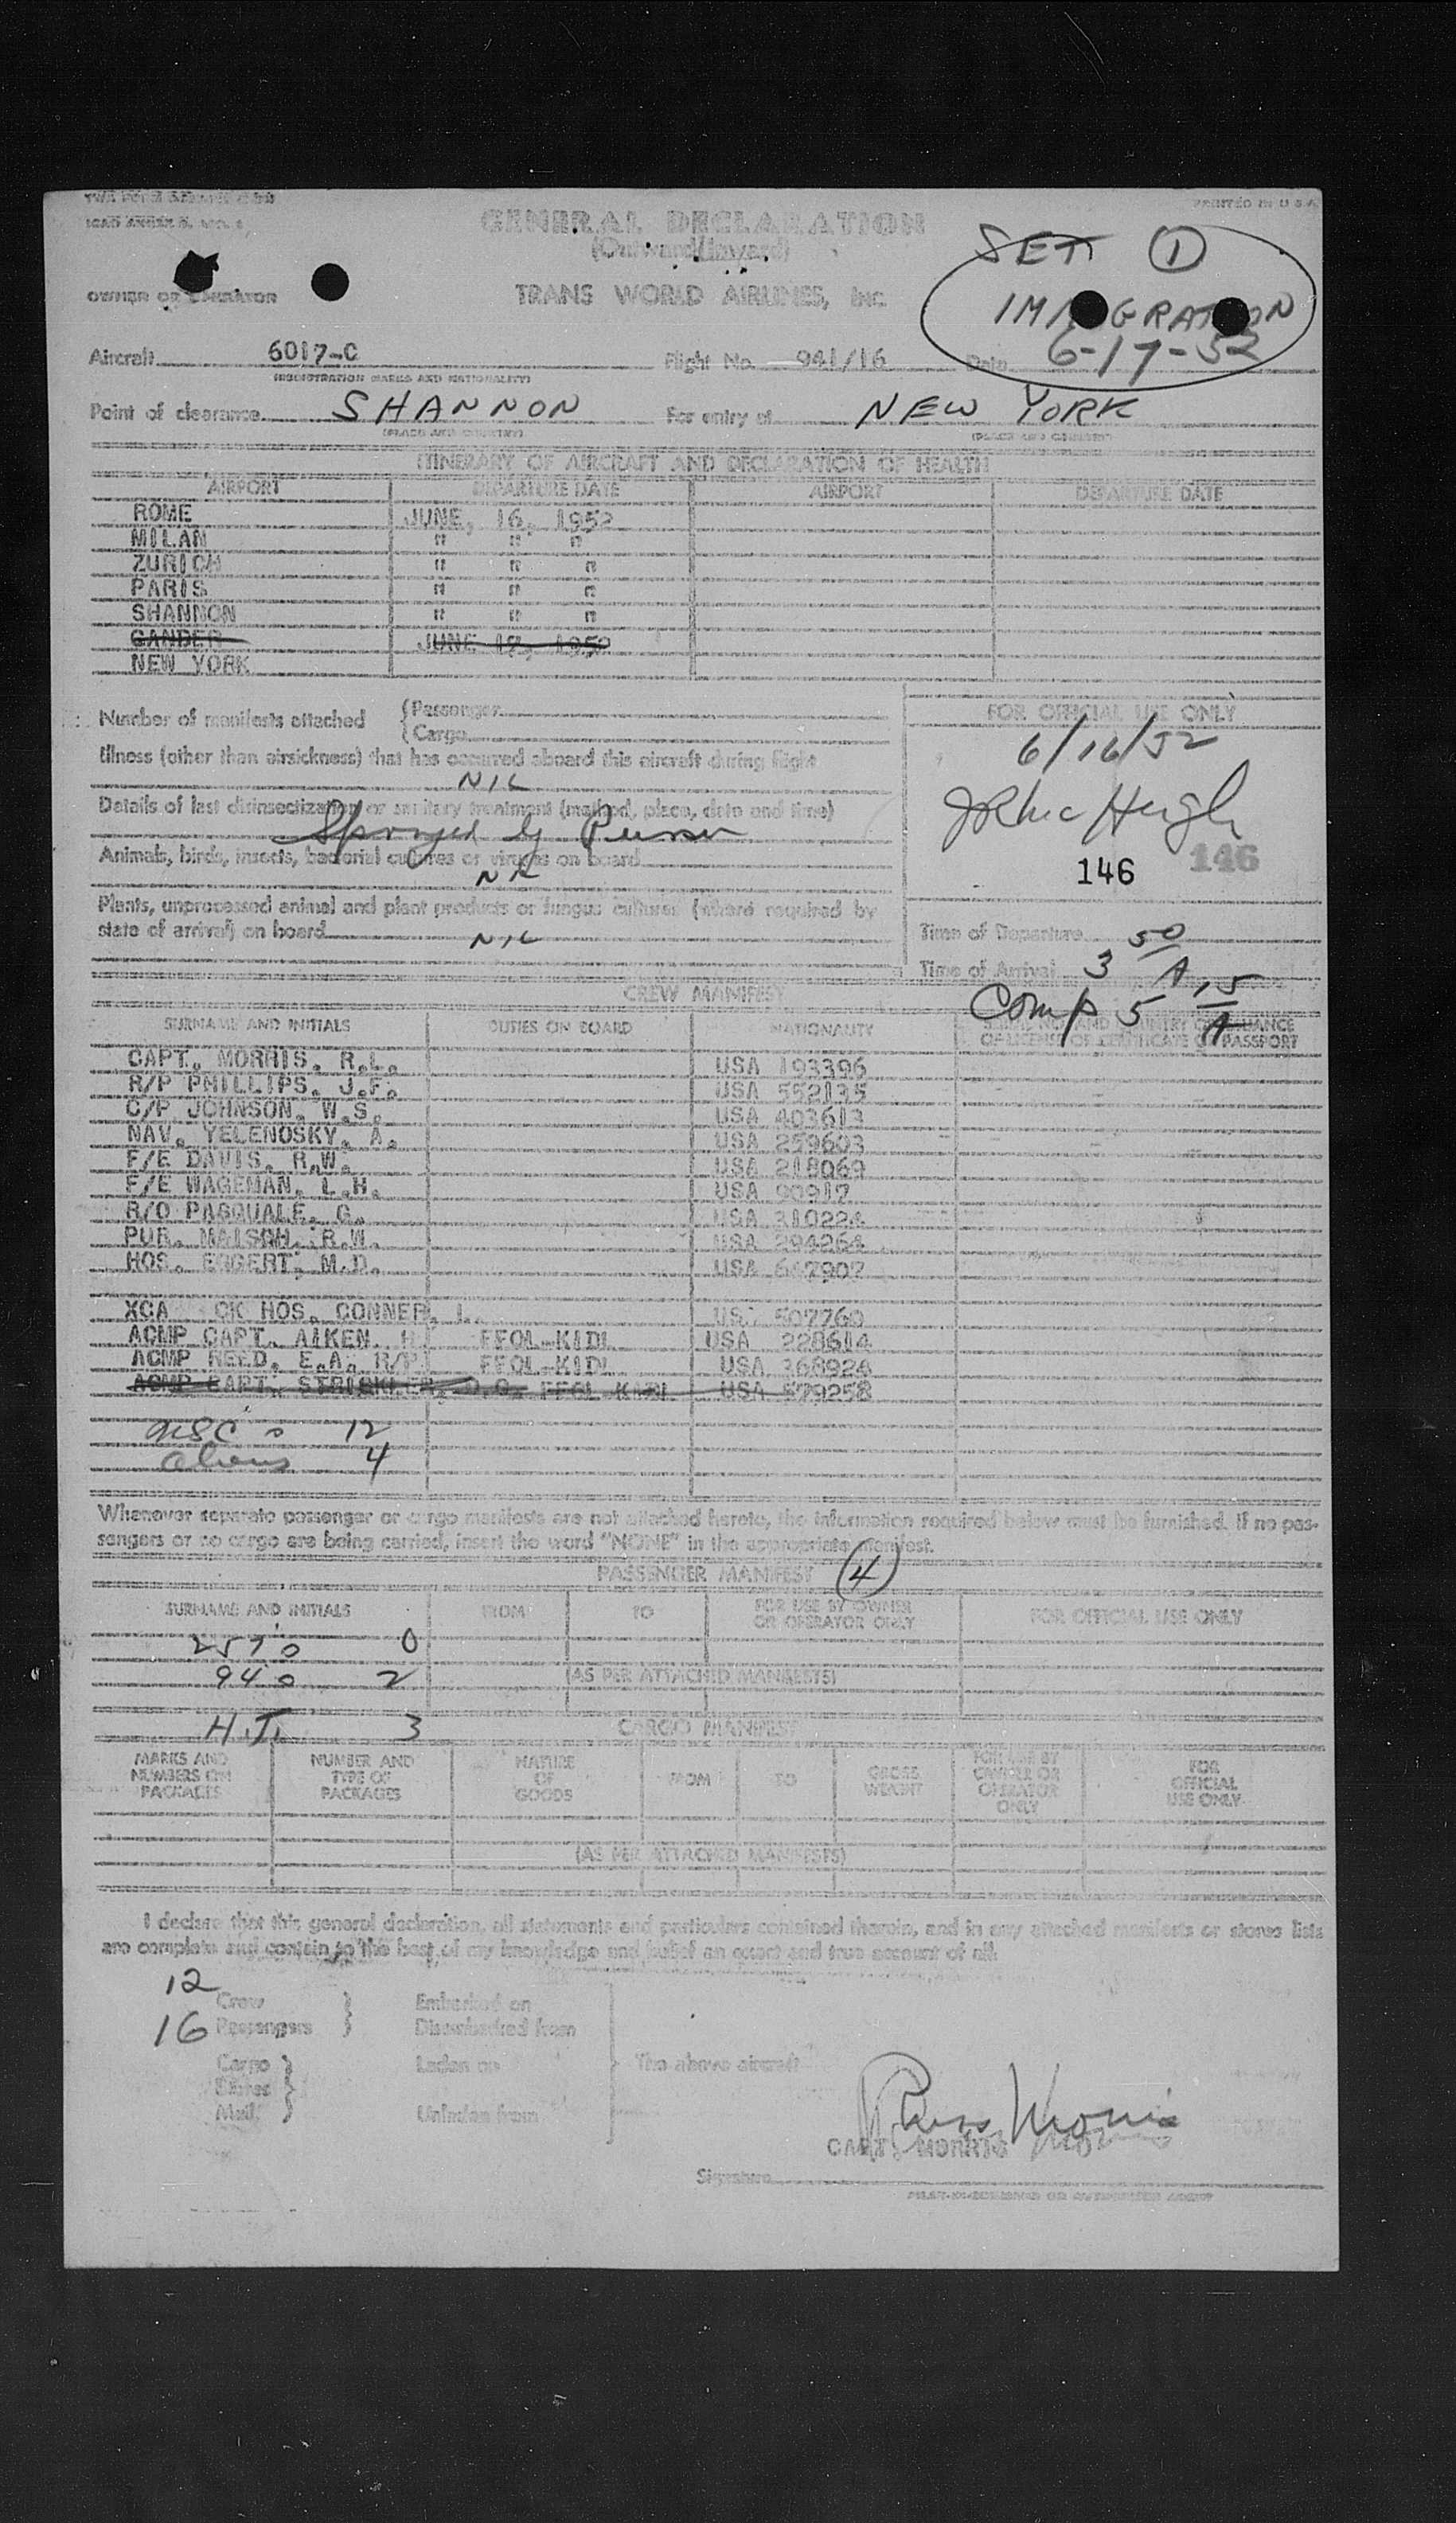 PRINTED IN U S A
GENERAL DECLARATION
(Outward/Inward)
SET ①
OWNER OR OPERATOR
TRANS WORLD AIRLINES, INC.
IMMIGRATION
Aircraft 6017-C
Flight No. 941/16
Date 6-17-52
(REGISTRATION MARKS AND NATIONALITY)
Point of clearance SHANNON
For entry at NEW YORK
(PLACE AND COUNTRY)
(PLACE AND COUNTRY)
ITINERARY OF AIRCRAFT AND DECLARATION OF HEALTH
AIRPORT DEPARTURE DATE AIRPORT DEPARTURE DATE
ROME JUNE, 16, 1952
MILAN " " "
ZURICH " " "
PARIS " " "
SHANNON " " "
GANDER JUNE 17, 1952
NEW YORK
Number of manifests attached {Passenger
{Cargo
FOR OFFICIAL USE ONLY
6/16/52
Illness (other than airsickness) that has occurred aboard this aircraft during flight
NIL
Details of last disinsectization or sanitary treatment (method, place, date and time)
Sprayed by Purser
Animals, birds, insects, bacterial cultures or viruses on board
NIL
146 146
Plants, unprocessed animal and plant products or fungus cultures (where required by
state of arrival) on board NIL
Time of Departure
Time of Arrival 3 50/A
Comp 5 15/A
CREW MANIFEST
SURNAME AND INITIALS DUTIES ON BOARD NATIONALITY SERIAL NO. AND COUNTRY OF ISSUANCE
OF LICENSE OR CERTIFICATE OR PASSPORT
CAPT. MORRIS, R.L. USA 193396
R/P PHILLIPS, J.F. USA 552135
C/P JOHNSON, W.S. USA 403613
NAV. YELENOSKY, A. USA 259603
F/E DAVIS, R.W. USA 218069
F/E WAGEMAN, L.H. USA 90917
R/O PASQUALE, G. USA 310224
PUR. MAISCH, R.W. USA 294264
HOS. EGGERT, M.D. USA 647907
XCA CK HOS. CONNER, I. USA 507760
ACMP CAPT. AIKEN, H FFOL-KIDL USA 228614
ACMP REED, E.A. R/P FFOL-KIDL USA 368926
ACMP CAPT. STRICKLER, FFOL-KIDL USA 579258
USC's 12
Aliens 4
Whenever separate passenger or cargo manifests are not attached hereto, the information required below must be furnished. If no pas-
sengers or no cargo are being carried, insert the word "NONE" in the appropriate manifest.
PASSENGER MANIFEST (4)
SURNAME AND INITIALS FROM TO FOR USE BY OWNER
OR OPERATOR ONLY FOR OFFICIAL USE ONLY
257's 0
94's 2
(AS PER ATTACHED MANIFESTS)
H.T. 3
CARGO MANIFEST
MARKS AND
NUMBERS ON
PACKAGES
NUMBER AND
TYPE OF
PACKAGES
NATURE
OF
GOODS
FROM
TO
GROSS
WEIGHT
FOR USE BY
OWNER OR
OPERATOR
ONLY
FOR
OFFICIAL
USE ONLY
(AS PER ATTACHED MANIFESTS)
I declare that this general declaration, all statements and particulars contained therein, and in any attached manifests or stores lists
are complete and contain to the best of my knowledge and belief an exact and true account of all:
12 Crew } Embarked on
16 Passengers } Disembarked from
Cargo } Laden on
The above aircraft
Stores }
Mail } Unladen from
Russ Morris
CAPT. MORRIS
Signature
PILOT-IN-COMMAND OR AUTHORIZED AGENT